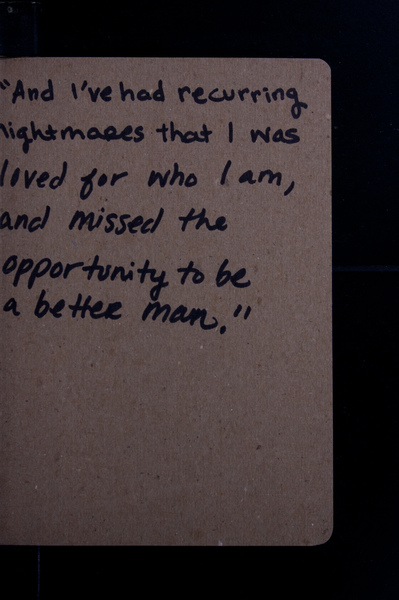 "And I've had recurring
nightmares that I was
loved for who I am,
and missed the
opportunity to be
a better man."